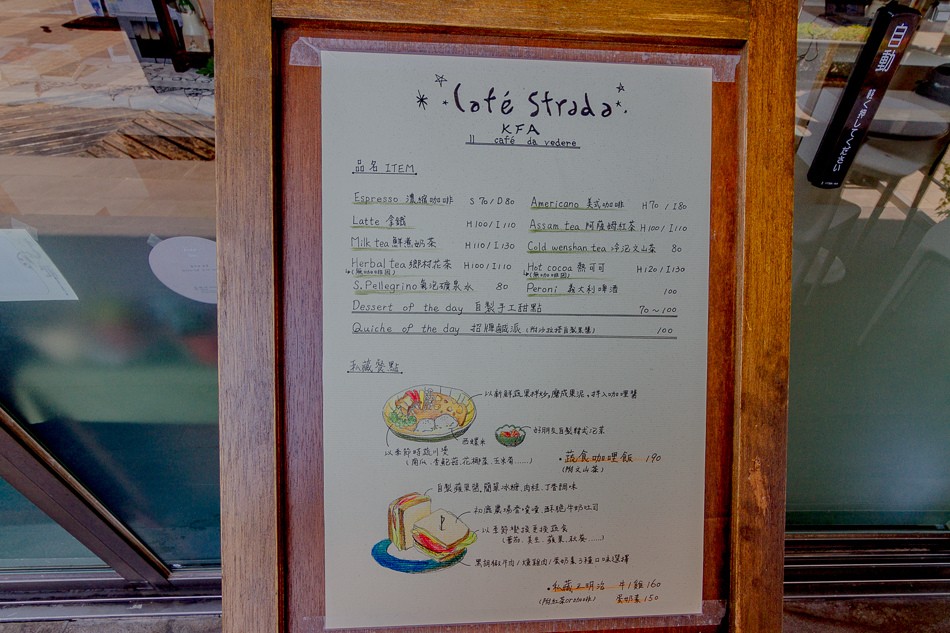 Café Strada
KFA
Il café da vedere
品名 ITEM
Espresso 濃縮咖啡 S 70 / D 80
Americano 美式咖啡 H 70 / I 80
Latte 拿鐵 H 100 / I 110
Assam tea 阿薩姆紅茶 H 100 / I 110
Milk tea 鮮煮奶茶 H 110 / I 130
Cold wenshan tea 冷泡文山茶 80
Herbal tea 鄉村花茶 H 100 / I 110
(無咖啡因)
Hot cocoa 熱可可 H 120 / I 130
(無咖啡因)
S. Pellegrino 氣泡礦泉水 80
Peroni 義大利啤酒 100
Dessert of the day 自製手工甜點 70~100
Quiche of the day 招牌鹹派 (附沙拉搭自製果醬) 100
私藏餐點
以新鮮蔬果拌炒,磨成果泥,拌入咖哩醬
好朋友自製韓式泡菜
西螺米
以季節時蔬川燙
(南瓜、杏鮑菇、花椰菜、玉米筍......)
·蔬食咖哩飯 190
(附文山茶)
自製蘋果醬,簡單冰糖、肉桂、丁香調味
酥脆牛奶吐司
以季節變換更換蔬食
(蕃茄、蘋果......)
黑胡椒牛肉 / 燻雞肉 / 蛋奶素 3種口味選擇
·私藏三明治 牛 / 雞 160
(附紅茶or咖啡) 蛋奶素 150
自動
軽く押してください